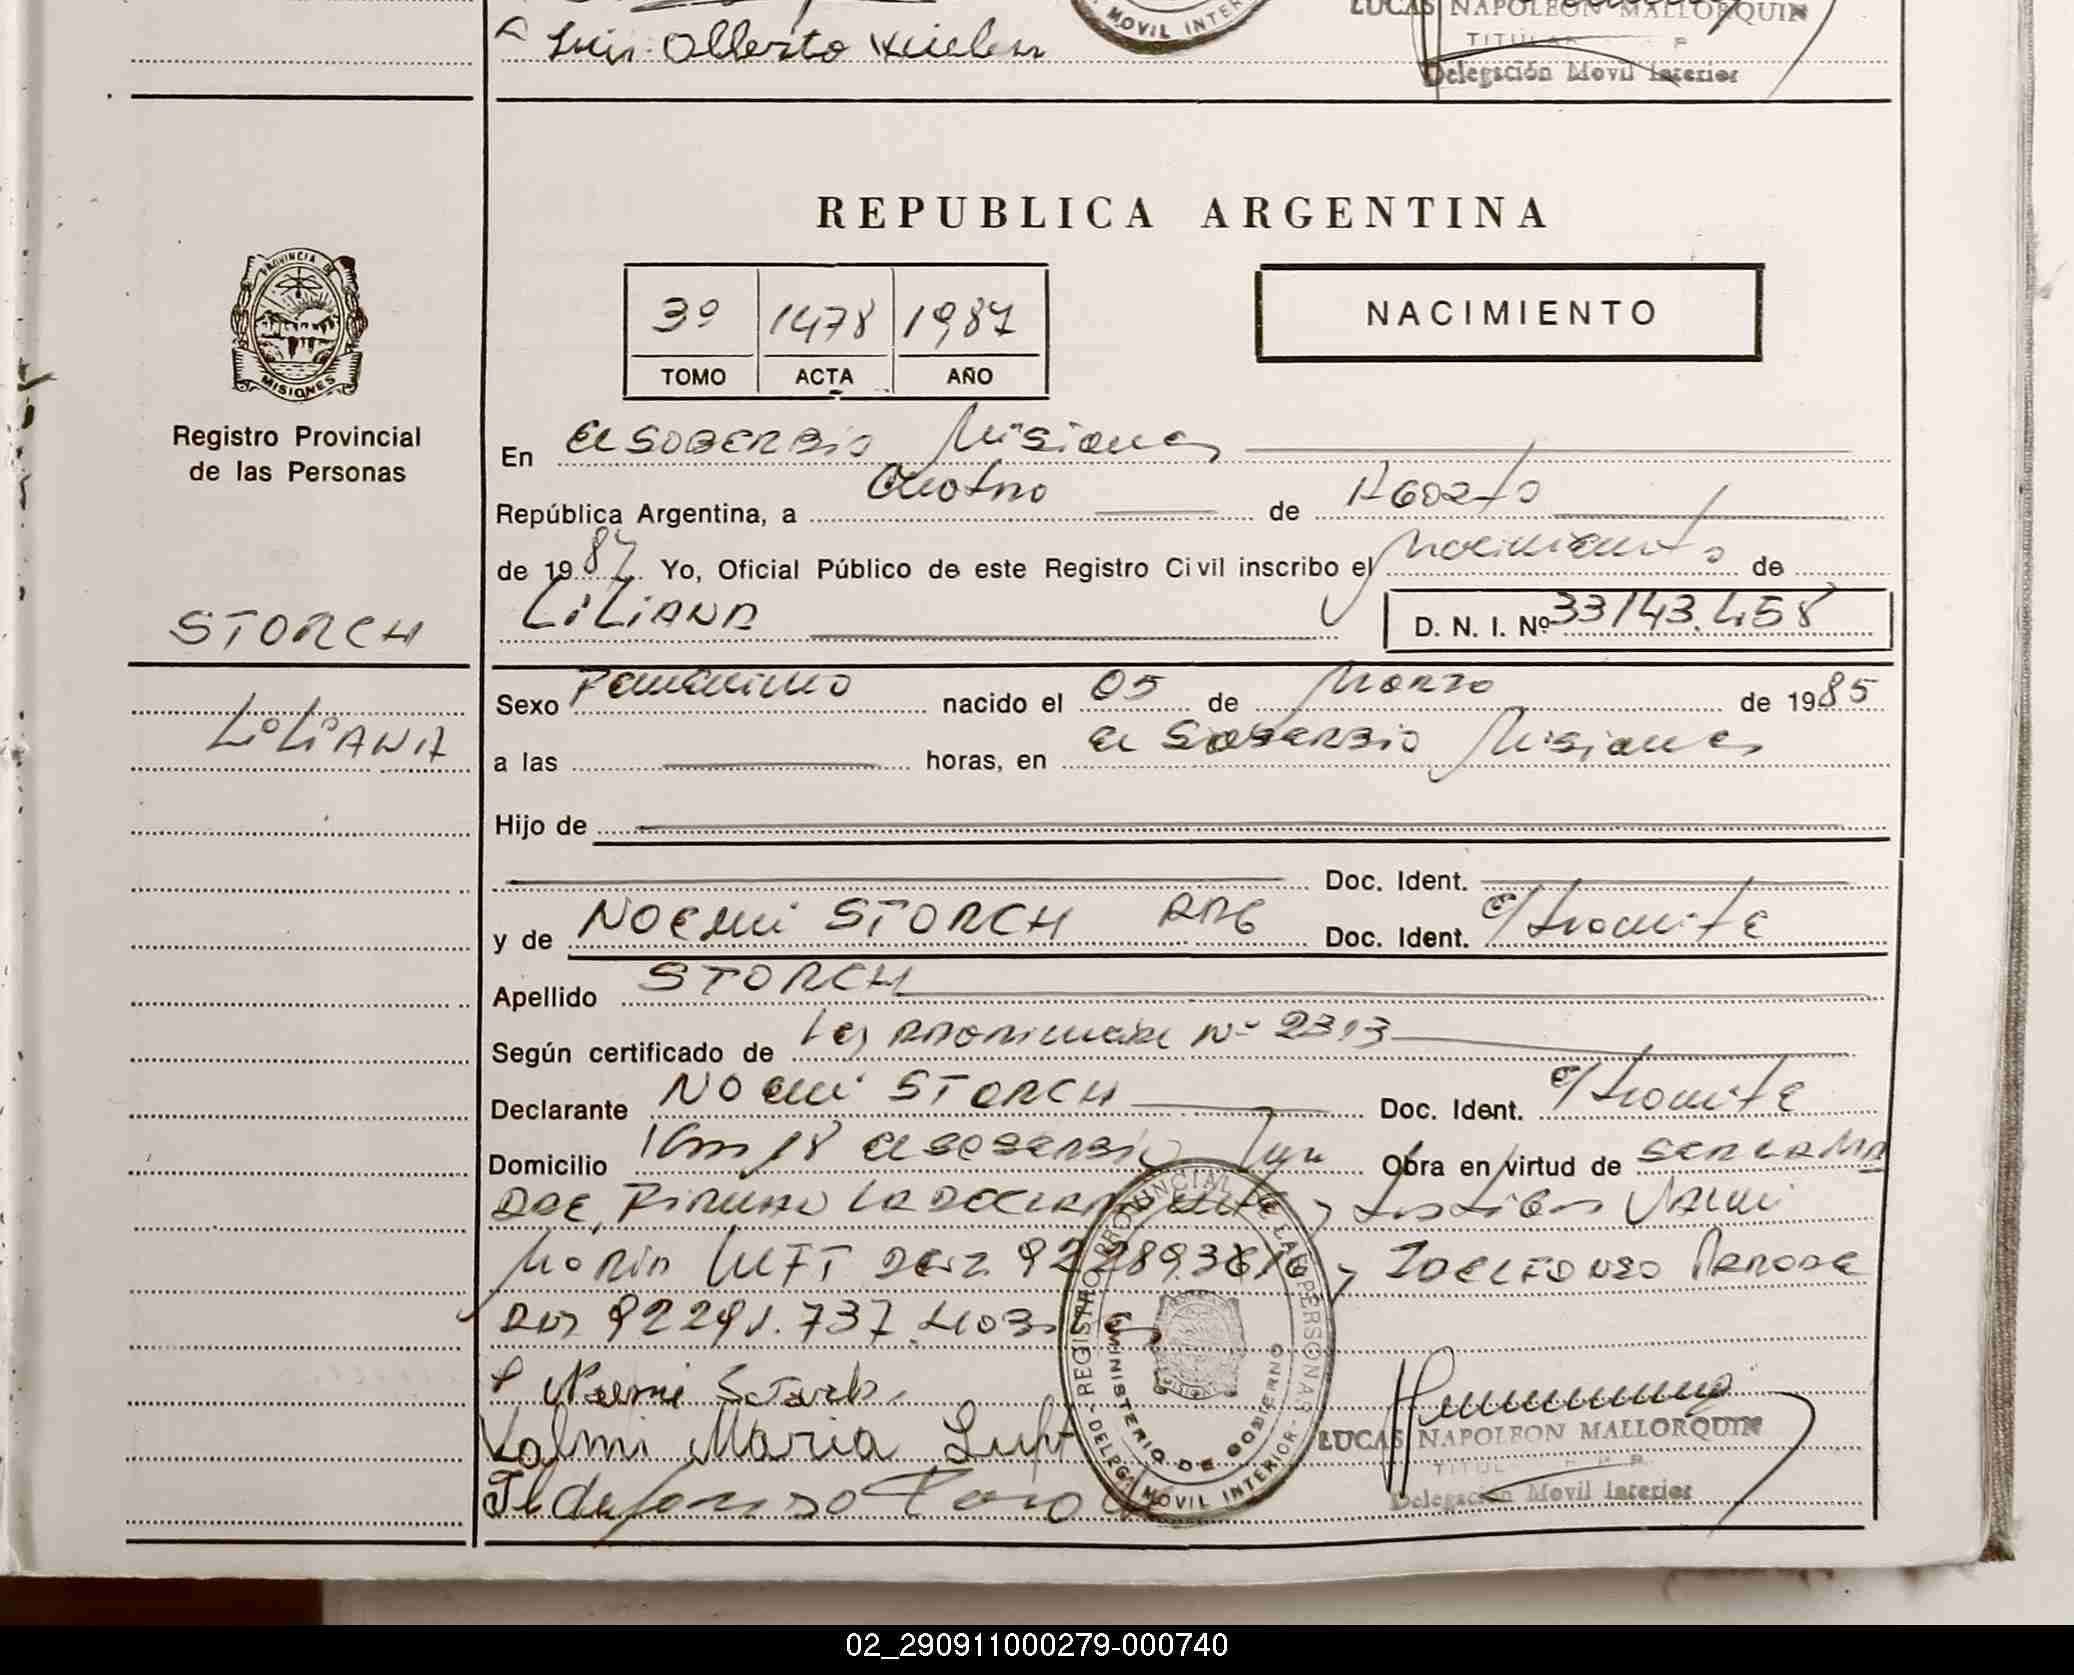 Luis Alberto
MOVIL INTER
LUCAS NAPOLEON MALLORQUIN
TITULAR
Delegación Movil Interior
REPUBLICA ARGENTINA
3º 1478 1987
TOMO ACTA AÑO
NACIMIENTO
PROVINCIA DE
MISIONES
Registro Provincial
de las Personas
En El SOBERBIO Misiones
República Argentina, a Cuatro de AGOSTO
de 1987 Yo, Oficial Público de este Registro Civil inscribo el Nacimiento de
LILIANA D. N. I. Nº 33143.458
STORCH
LILIANA
Sexo Femenino nacido el 05 de Marzo de 1985
a las horas, en El SOBERBIO Misiones
Hijo de
Doc. Ident.
y de NOEMI STORCH ARG Doc. Ident. e/tramite
Apellido STORCH
Según certificado de Ley PROVINCIAL Nº 2313
Declarante NOEMI STORCH Doc. Ident. e/tramite
Domicilio Km 18 El SOBERBIO Obra en virtud de SER LA MA
DRE, FIRMAN LA DECLARANTE y testigos VALMI
MARIA LUFT DNI 92289.3 y ILDEFONSO
DNI 92291.737
Noemi Storch
Valmi Maria Luft
Ildefonso
REGISTRO PROVINCIAL DE LAS PERSONAS
MINISTERIO DE GOBIERNO
DELEG. MOVIL INTERIOR
LUCAS NAPOLEON MALLORQUIN
Delegación Movil Interior
02_290911000279-000740